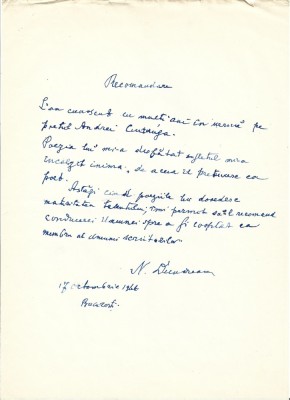 Recomandare
L-am cunoscut cu mulți ani în urmă pe
poetul Andrei Ciurunga.
Poezia lui mi-a desfătat sufletul mi-a
încălzit inima, de aceea îl prețuiesc ca
poet.
Astăzi când poeziile lui dovedesc
maturitatea talentului, îmi permit să-l recomand
conducerii Uniunei spre a fi cooptat ca
membru al Uniunii scriitorilor
N.
17 octombrie 1966
București.